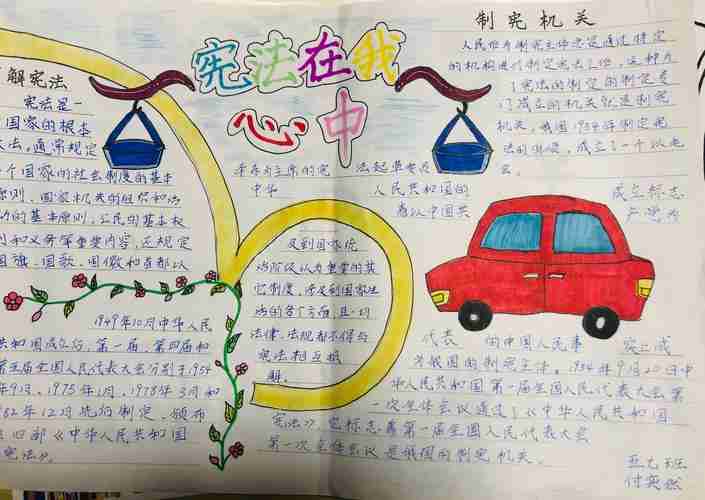 宪法在我
心中
了解宪法
宪法是一
国家的根本
大法,通常规定
个国家的社会制度的基本
原则、国家机关的组织和活
动的基本原则,公民的基本权
利和义务等重要内容,还规定
国旗、国歌、国徽和首都以
及到国家统
治阶级认为重要的其
它制度,涉及到国家生
活的各个方面,且一切
法律、法规都不得与
宪法相互抵
触。
1949年10月中华人民
共和国成立后,第一届、第四届和
第五届全国人民代表大会分别于1954
年9月、1975年1月、1978年3月和
82年12月先后制定、颁布
四部《中华人民共和国
宪法》。
制宪机关
人民作为制宪主体
的机构进行制定宪法工作,这种为
了宪法的制定而制定专
门成立的机关就是制宪
机关,我国1954年制定宪
法的时候,成立了一个以毛
泽东为主席的宪 法起草委员
中华 人民共和国的 成立标志
着以中国共 产党为
代表 的中国人民事 实上成
为我国的制宪主体。1954年9月20日中
华人民共和国第一届全国人民代表大会第
一次全体会议通过了《中华人民共和国
宪法》,它标志着第一届全国人民代表大会
第一次全体会议是我国的制宪机关。
五七班
付奕然